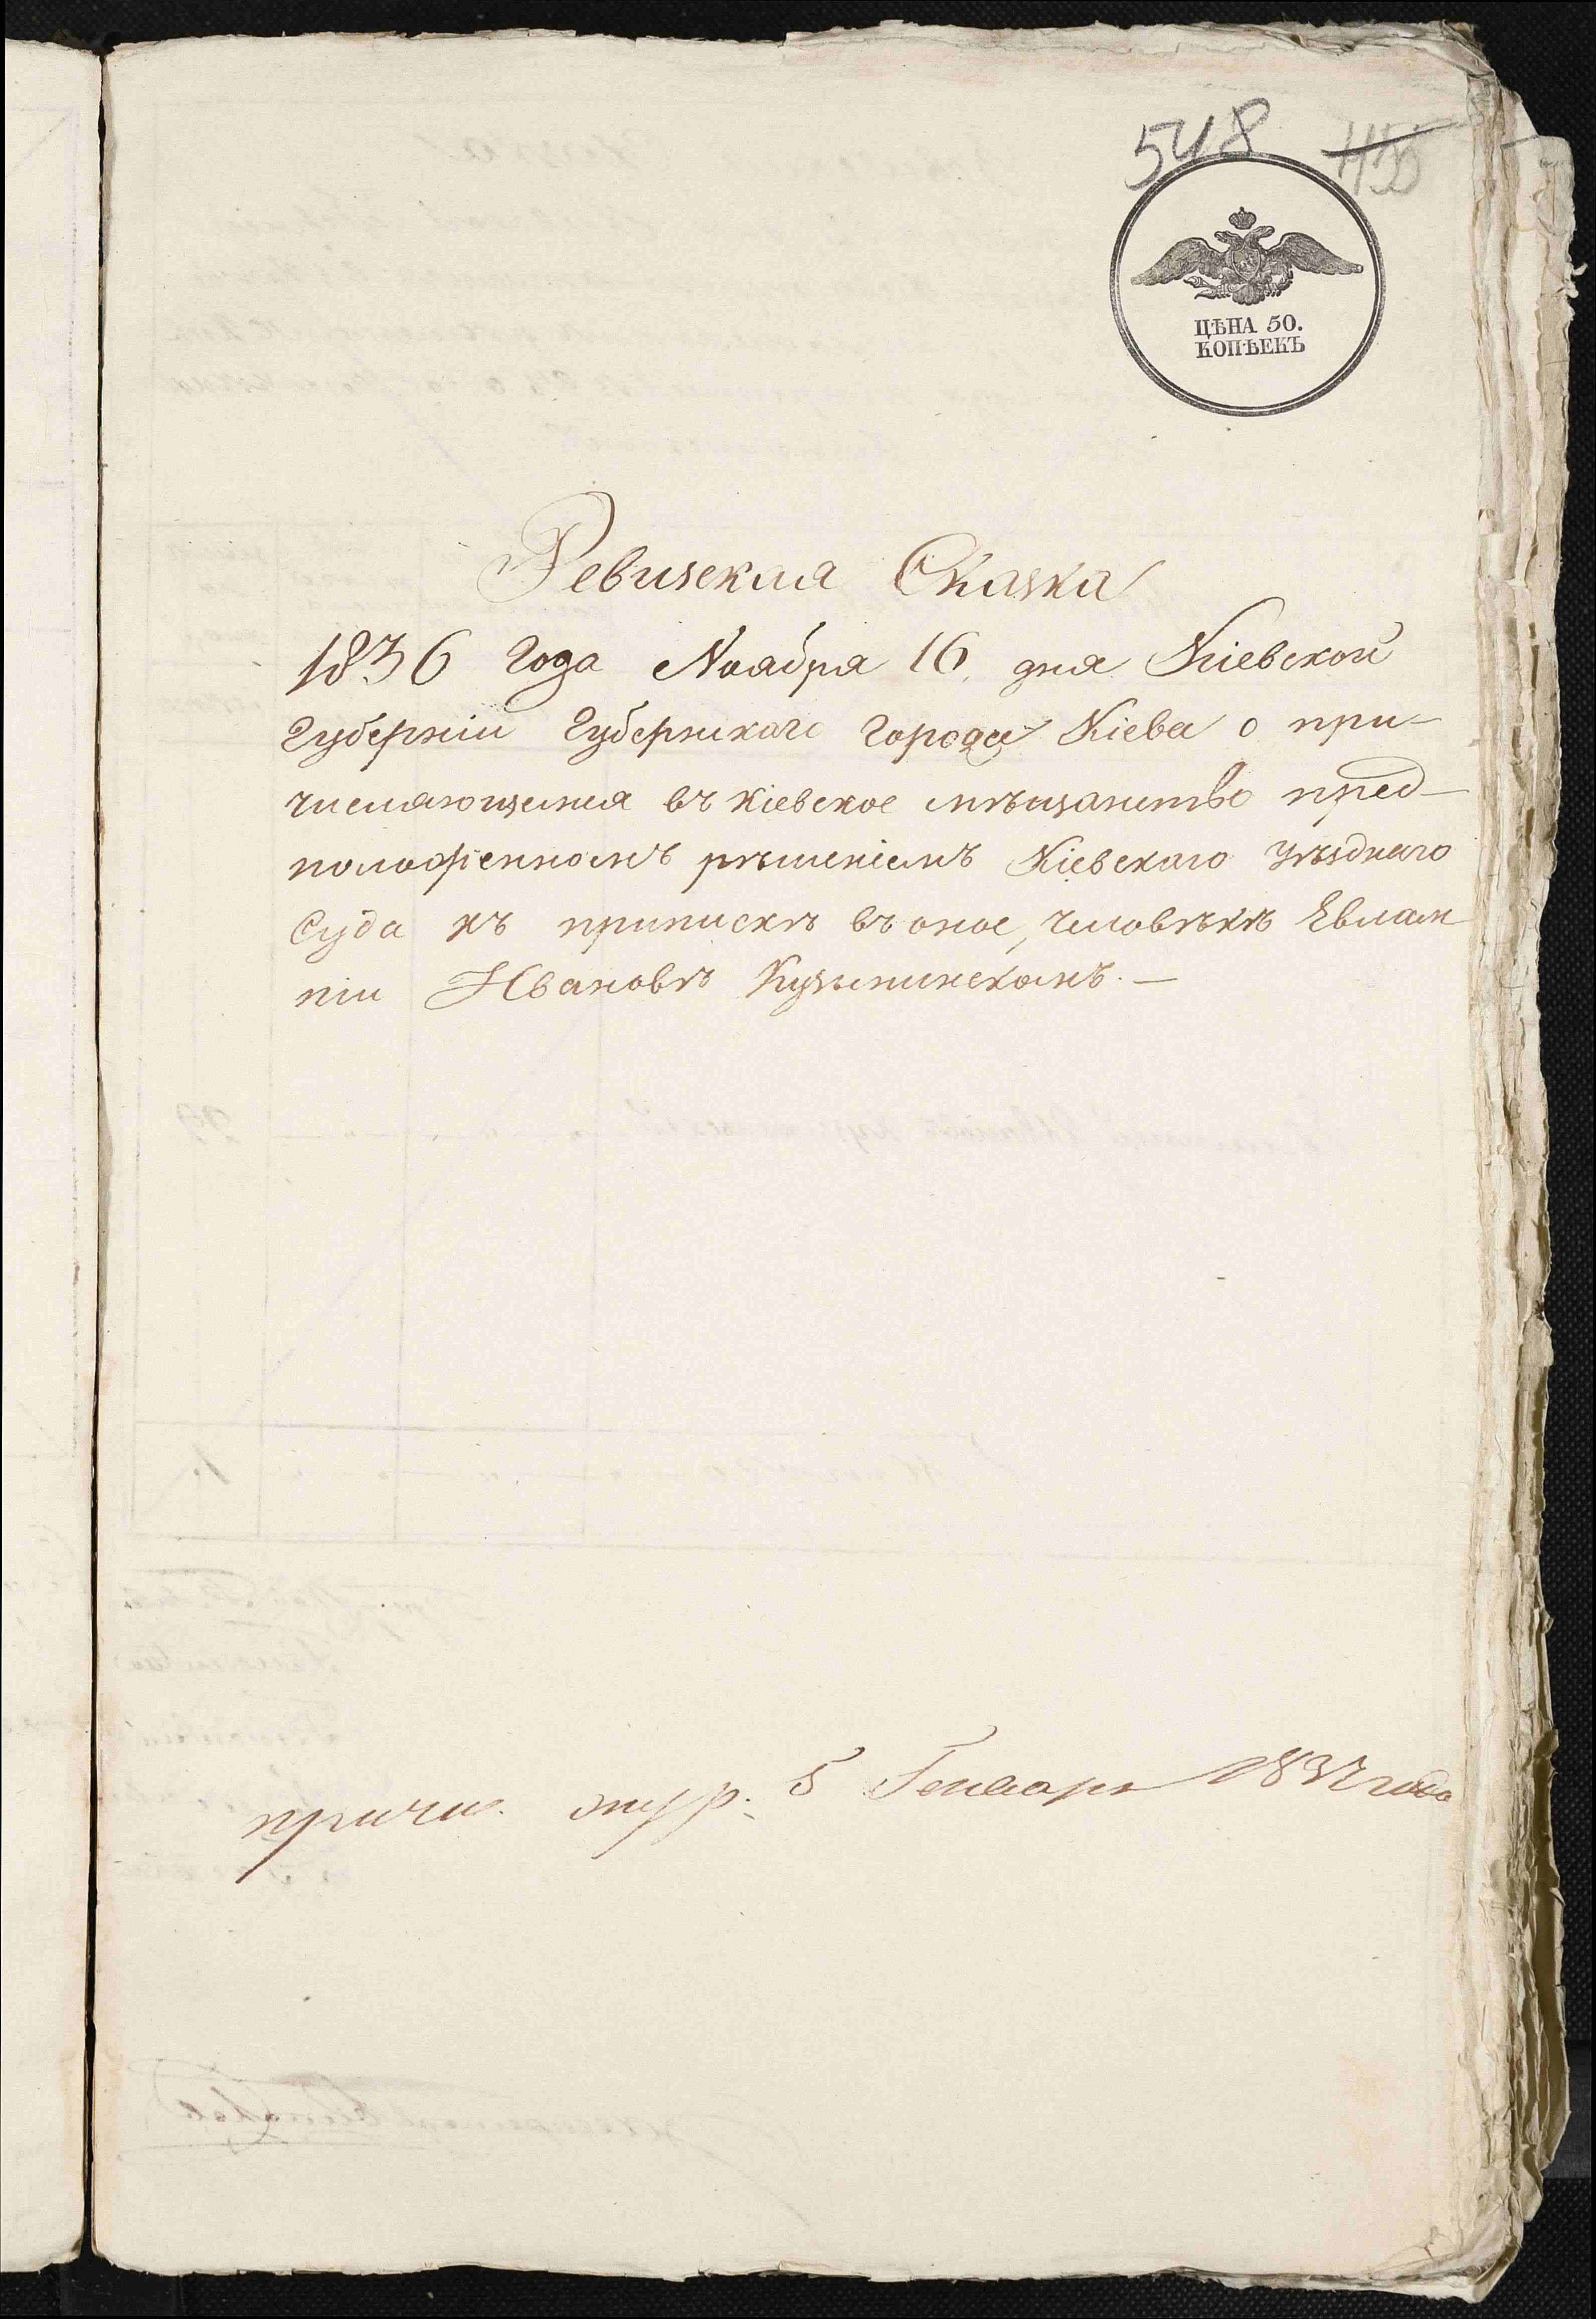 548
ЦѢНА 50.
КОПѢЕКЪ
Ревизская Сказка
1836 Года Ноября 16. дня Кіевской
Губерніи Губернскаго Города Кіева о при-
числяющемся въ кіевское мѣщанство пред-
положенномъ рѣшеніемъ Кіевскаго Уѣзднаго
Суда къ припискѣ въ оное, человѣкѣ Евлам
піи Ивановѣ Кузьминскомъ. —
причис. жур. 5 Генваря 1837 года